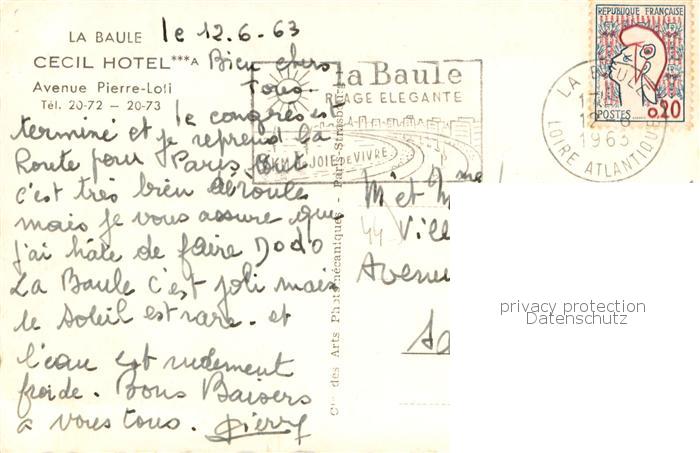 LA BAULE le 12.6.63
CECIL HOTEL***A Bien chers
Avenue Pierre-Loti Tous
Tél. 20-72 — 20-73
le congrès est
terminé et je reprend la
Route pour Paris, tout
c'est très bien déroulé
mais je vous assure que
j'ai hâte de faire Dodo
La Baule c'est joli mais
le Soleil est rare. et
l'eau est rudement
froide. Bons Baisers
a vous tous. Pierre
la Baule
PLAGE ELEGANTE
JOIE DE VIVRE
Cie des Arts Photomécaniques - Paris-Strasbourg
REPUBLIQUE FRANÇAISE
POSTES 0,20
LA BAULE
1963
LOIRE ATLANTIQUE
M et Mme
44 Vill
Avenue
privacy protection
Datenschutz